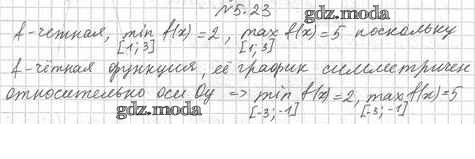 №5.23
gdz.moda
f-четная, min f(x)=2, max f(x)=5 поскольку
[1;3] [1;3]
f-чётная функция, её график симметричен
относительно оси Oy => min f(x)=2, max f(x)=5
gdz.moda [-3;-1] [-3;-1]